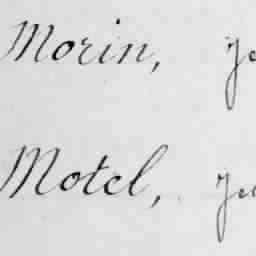 Morin,
Motel,